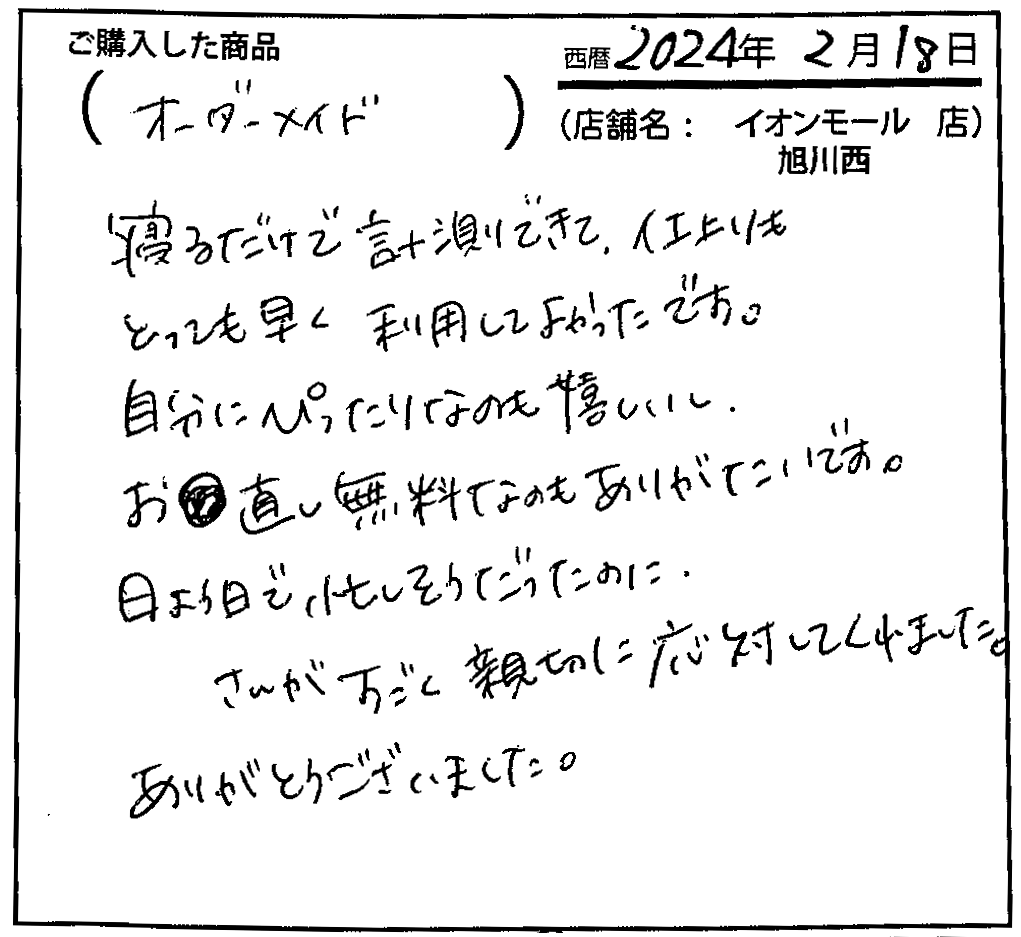 ご購入した商品
西暦2024年 2月18日
(オーダーメイド)
(店舗名： イオンモール 店)
旭川西
寝るだけで計測できて、仕上りも
とっても早く利用してよかったです。
自分にぴったりなのも嬉しいし、
お直し無料なのもありがたいです。
日よう日で忙しそうだったのに、
さんがすごく親切に応対してくれました。
ありがとうございました。